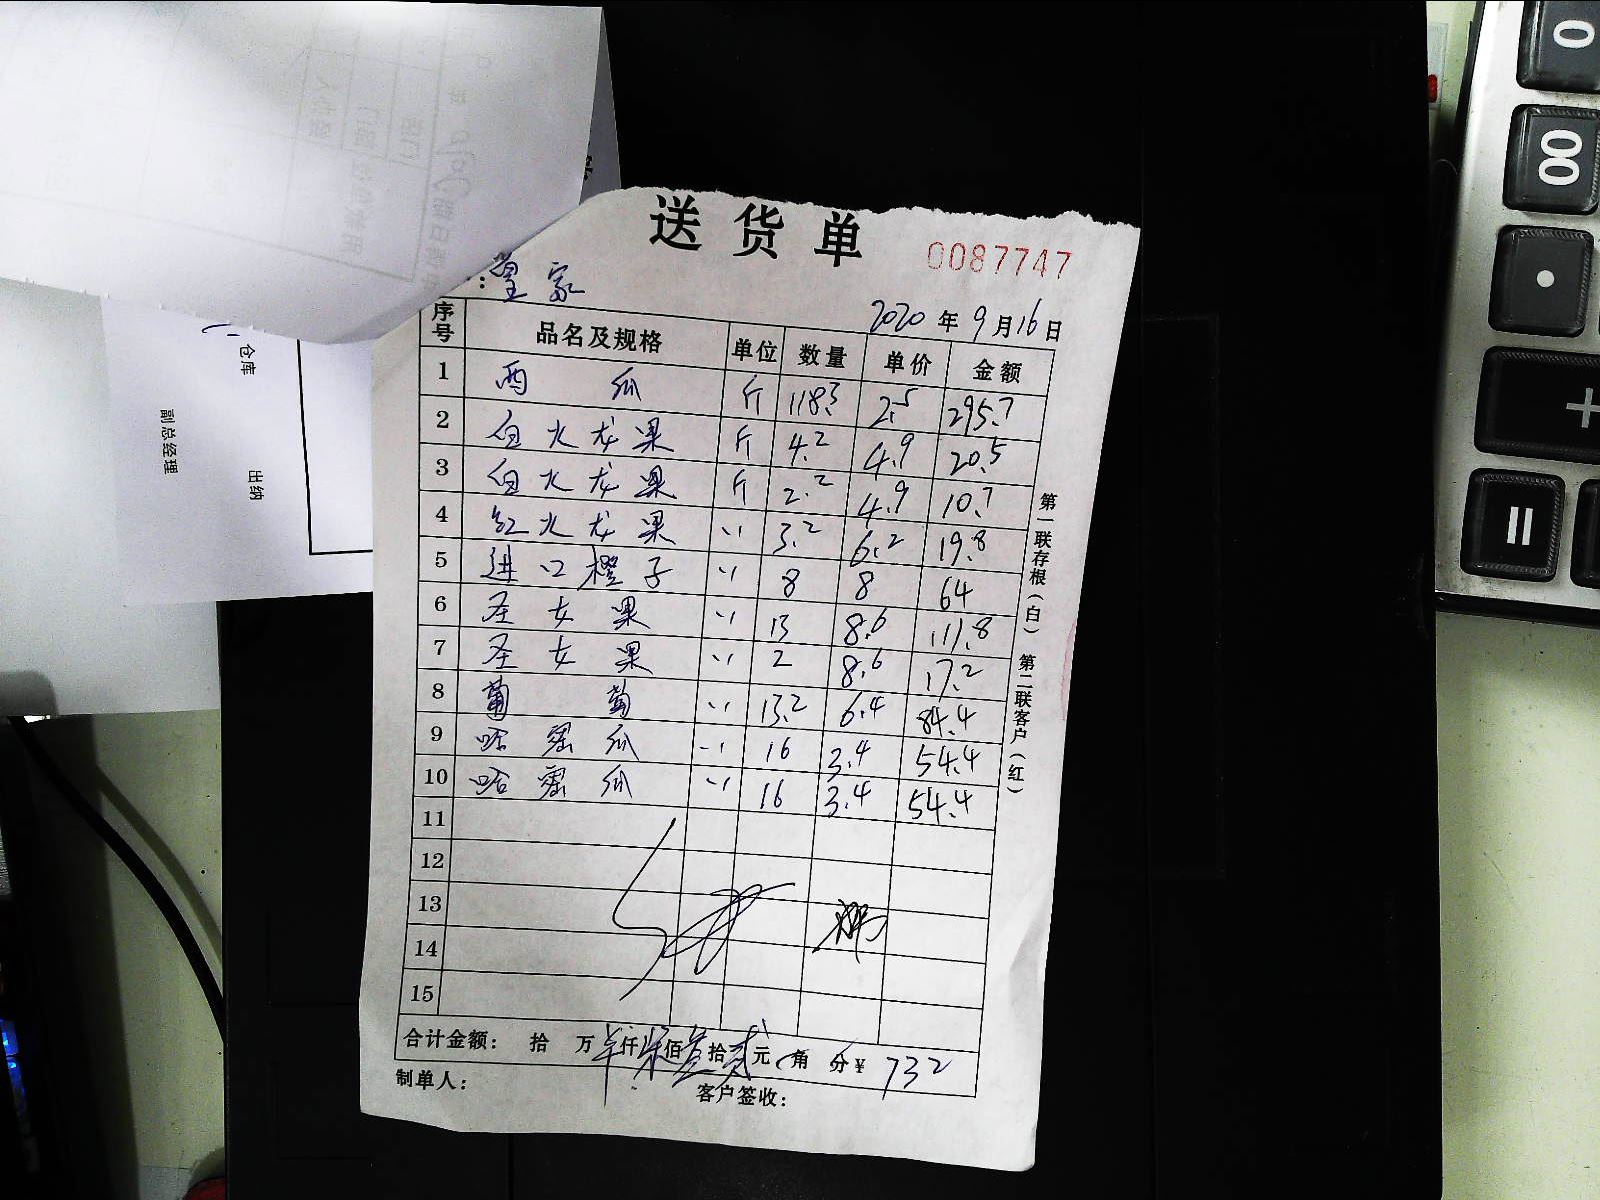 送货单 0087747
：皇家
2020 年 9 月 16 日
序号 品名及规格 单位 数量 单价 金额
1 西瓜 斤 118.3 2.5 295.7
2 白火龙果 斤 4.2 4.9 20.5
3 白火龙果 斤 2.2 4.9 10.7
4 红火龙果 〃 3.2 6.2 19.8
5 进口橙子 〃 8 8 64
6 圣女果 〃 13 8.6 111.8
7 圣女果 〃 2 8.6 17.2
8 葡萄 〃 13.2 6.4 84.4
9 哈密瓜 〃 16 3.4 54.4
10 哈密瓜 〃 16 3.4 54.4
11
12
13
14
15
合计金额： 拾 万 仟 柒 佰 叁 拾 贰 元 角 分 ¥ 732
制单人： 客户签收：
第一联存根（白） 第二联客户（红）
仓库
副总经理
出纳
0
00
+
=